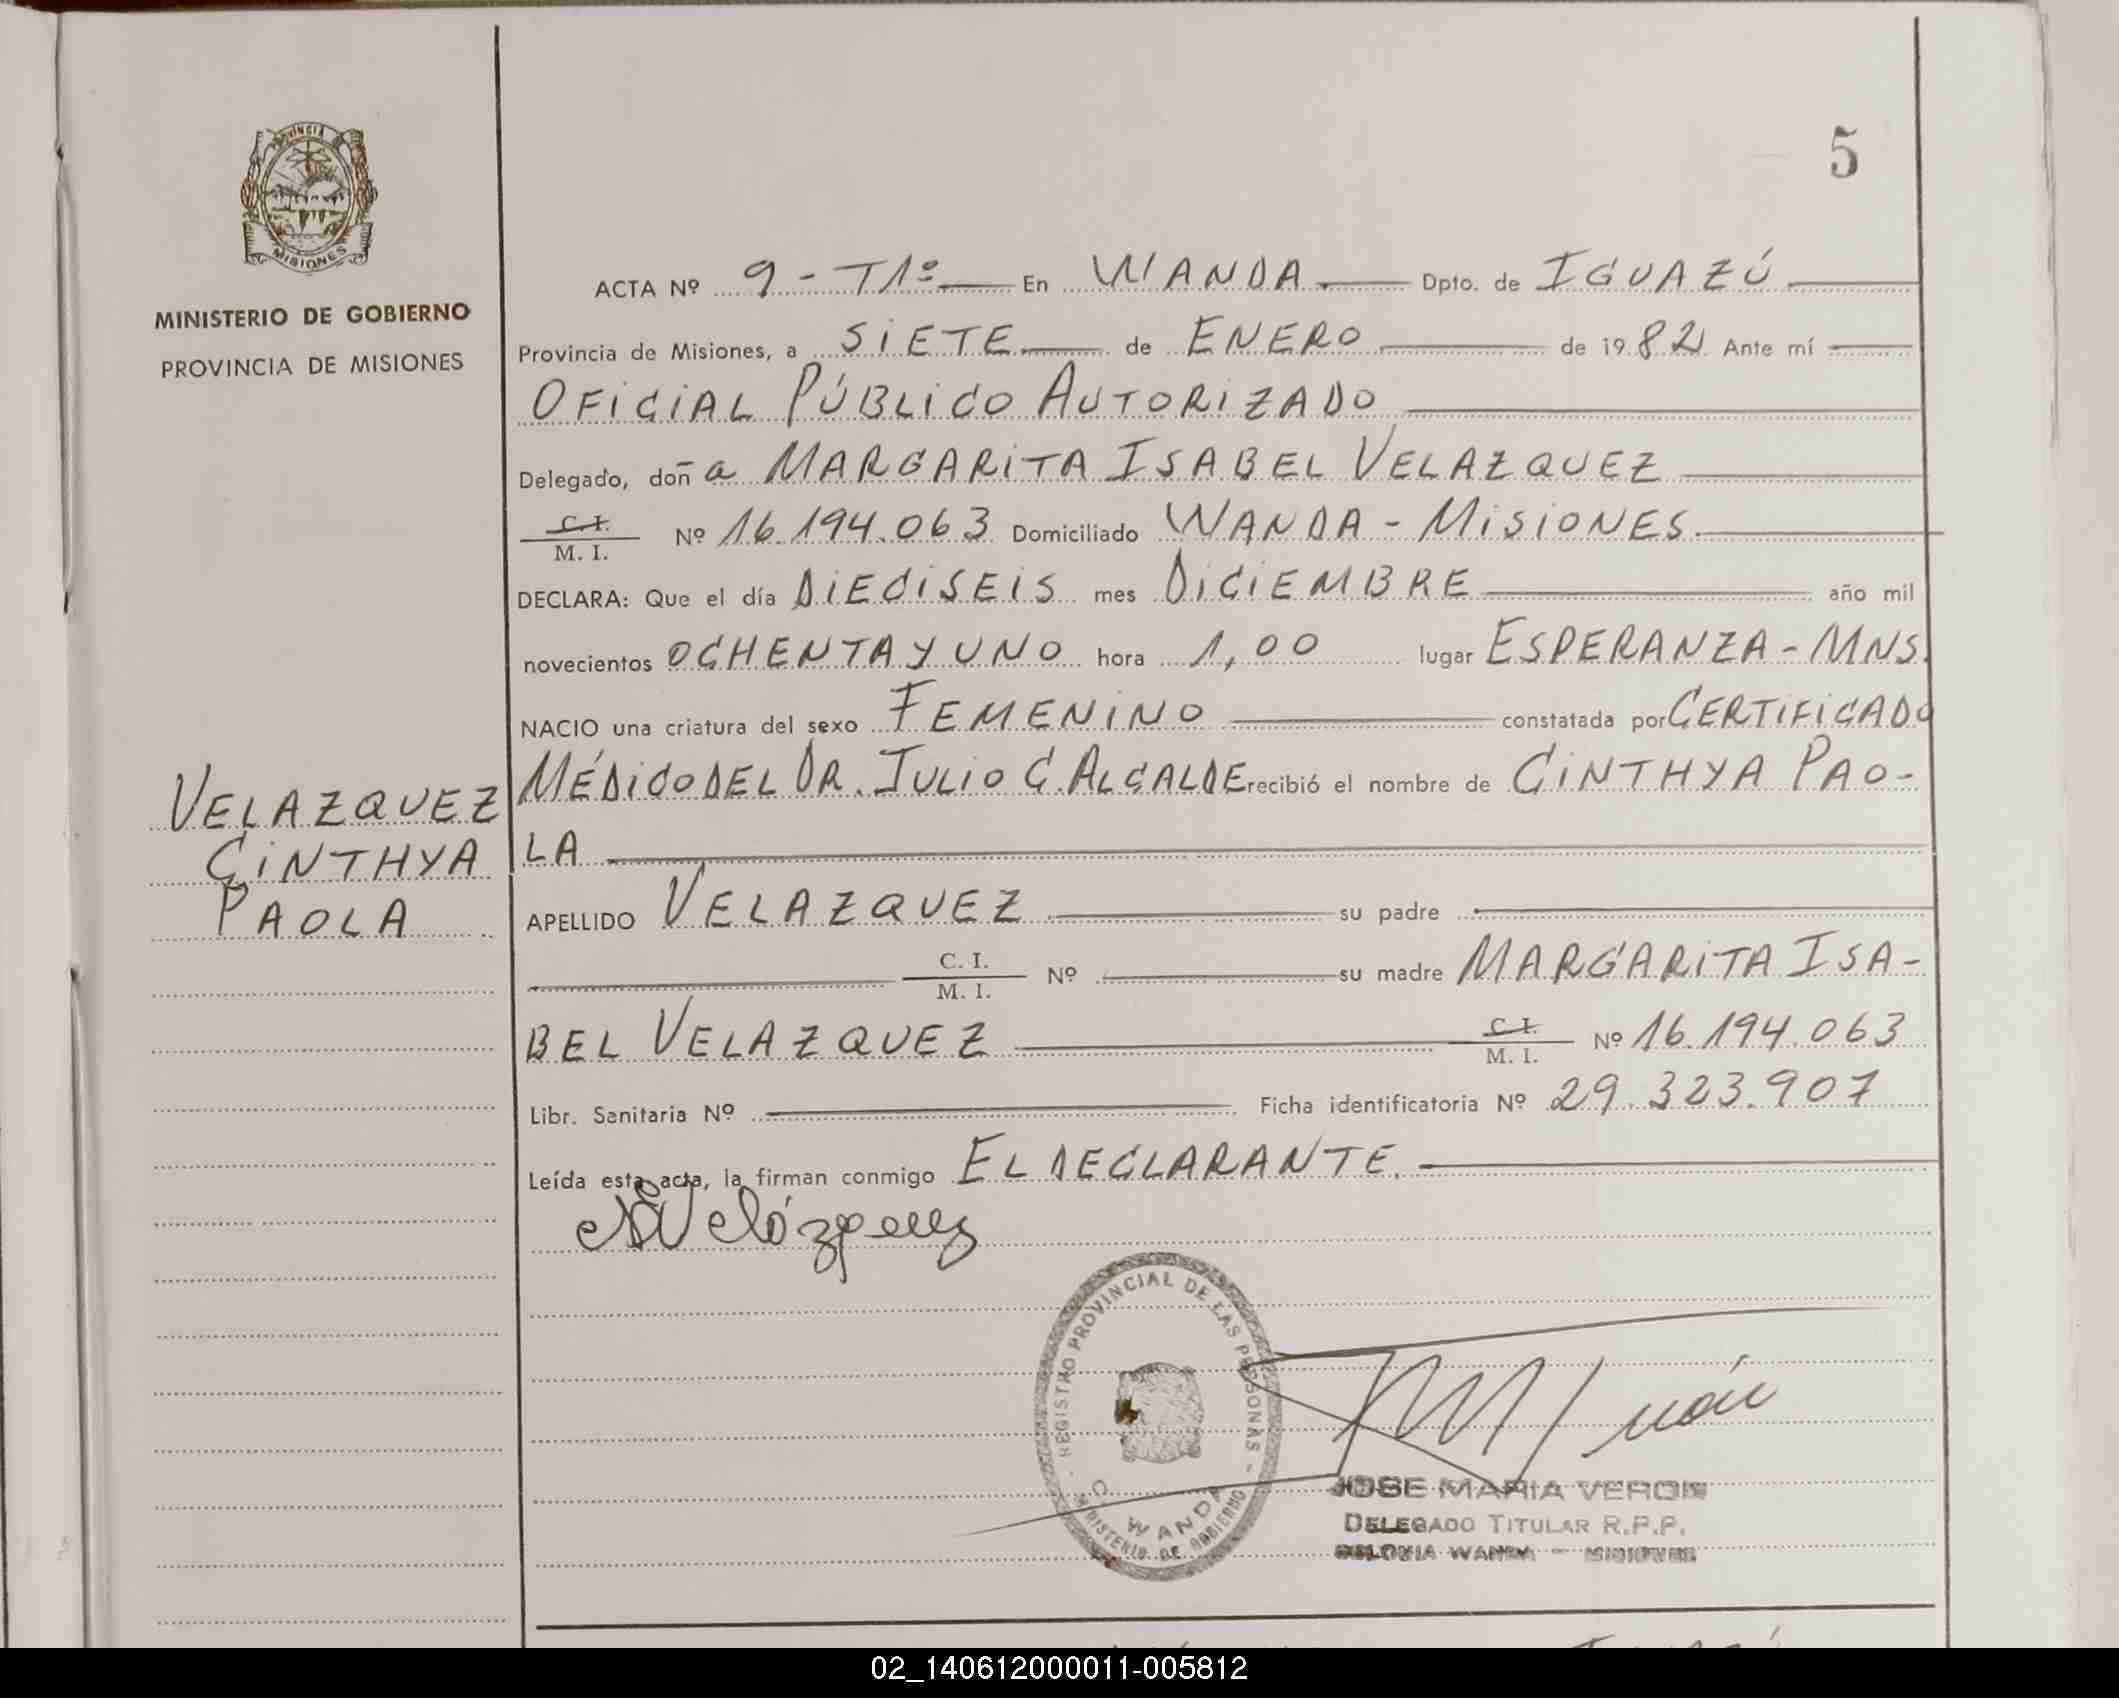 PROVINCIA
MISIONES
MINISTERIO DE GOBIERNO
PROVINCIA DE MISIONES
5
ACTA Nº 9 - T1º En WANDA Dpto. de IGUAZÚ
Provincia de Misiones, a SIETE de ENERO de 1982 Ante mí
OFICIAL PÚBLICO AUTORIZADO
Delegado, doña MARGARITA ISABEL VELAZQUEZ
C. I.
M. I. Nº 16.194.063 Domiciliado WANDA - MISIONES
DECLARA: Que el día DIECISEIS mes DICIEMBRE año mil
novecientos OCHENTA Y UNO hora 1,00 lugar ESPERANZA - MNS.
NACIO una criatura del sexo FEMENINO constatada por CERTIFICADO
MÉDICO DEL DR. JULIO C. ALCALDE recibió el nombre de CINTHYA PAO-
LA
VELAZQUEZ
CINTHYA
PAOLA
APELLIDO VELAZQUEZ su padre
C. I.
M. I. Nº su madre MARGARITA ISA-
BEL VELAZQUEZ C. I.
M. I. Nº 16.194.063
Libr. Sanitaria Nº Ficha identificatoria Nº 29.323.907
Leída esta acta, la firman conmigo EL DECLARANTE.
REGISTRO PROVINCIAL DE LAS PERSONAS
C. WANDA
MINISTERIO DE GOBIERNO
JOSE MARIA VERON
DELEGADO TITULAR R.P.P.
COLONIA WANDA - MISIONES
02_140612000011-005812